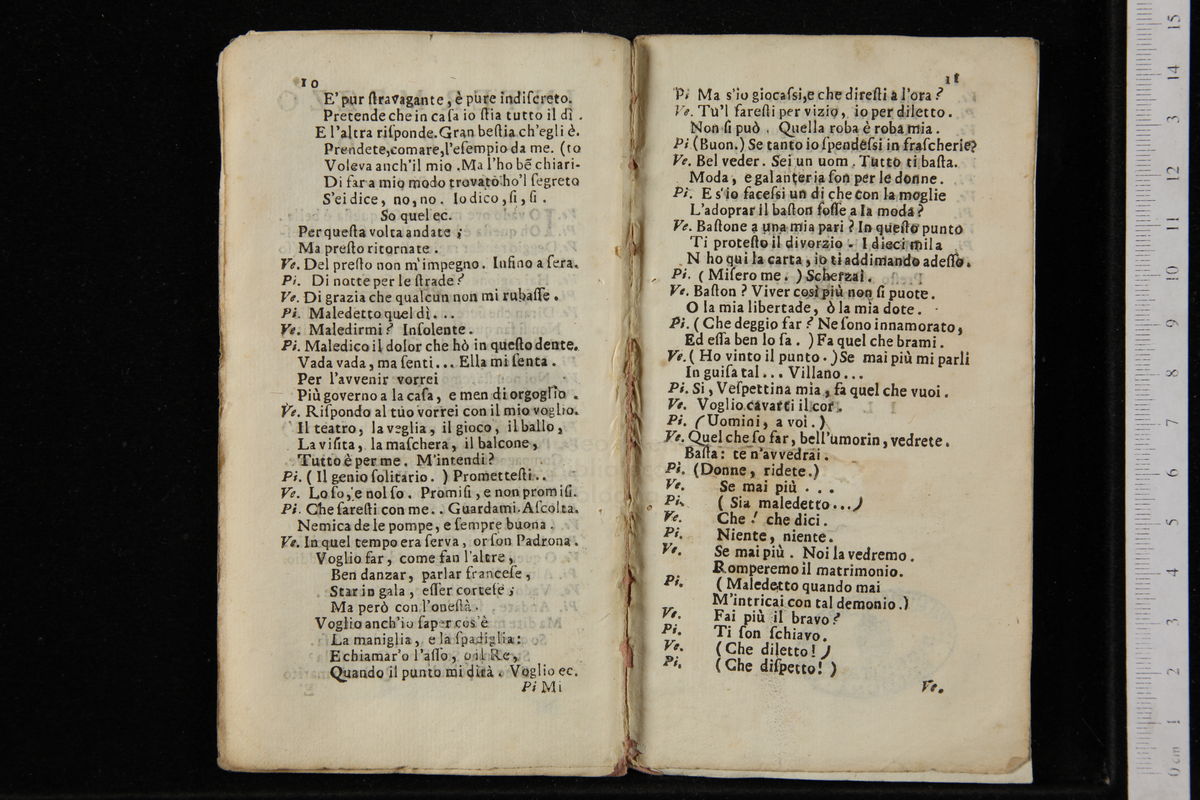 10
E' pur ſtravagante, è pure indiſcreto.
Pretende che in caſa io ſtia tutto il dì .
E l'altra riſponde. Gran beſtia ch'egli è.
Prendete, comare, l'eſempio da me. (to
Voleva anch'il mio . Ma l'ho bẽ chiari-
Di far a mio modo trovato ho'l ſegreto
S'ei dice, no, no. Io dico, ſi, ſi .
So quel ec.
Per queſta volta andate ;
Ma preſto ritornate .
Ve. Del preſto non m'impegno. Inſino a ſera.
Pi. Di notte per le ſtrade ?
Ve. Di grazia che qualcun non mi rubaſſe .
Pi. Maledetto quel dì. . .
Ve. Maledirmi ? Inſolente.
Pi. Maledico il dolor che hò in queſto dente.
Vada vada, ma ſenti... Ella mi ſenta .
Per l'avvenir vorrei
Più governo a la caſa, e men di orgoglio .
Ve. Riſpondo al tuo vorrei con il mio voglio.
Il teatro, la veglia, il gioco, il ballo,
La viſita, la maſchera, il balcone,
Tutto è per me. M'intendi ?
Pi. ( Il genio ſolitario. ) Prometteſti...
Ve. Lo ſo, e nol ſo. Promiſi, e non promiſi.
Pi. Che fareſti con me.. Guardami. Aſcolta.
Nemica de le pompe, e ſempre buona .
Ve. In quel tempo era ſerva, or ſon Padrona .
Voglio far, come fan l'altre,
Ben danzar, parlar franceſe,
Star in gala, eſſer corteſe ;
Ma però con l'oneſtà.
Voglio anch'io ſaper cos'è
La maniglia, e la ſpadiglia:
E chiamar'o l'aſſo, o il Re,
Quando il punto mi dirà . Voglio ec.
Pi Mi
11
Pi Ma s'io giocaſsi, e che direſti a l'ora ?
Ve. Tu'l fareſti per vizio, io per diletto.
Non ſi può . Quella roba è roba mia.
Pi (Buon.) Se tanto io ſpendeſsi in fraſcherie?
Ve. Bel veder. Sei un uom. Tutto ti baſta.
Moda, e galanteria ſon per le donne.
Pi. E s'io faceſsi un dì che con la moglie
L'adoprar il baſton foſſe a la moda ?
Ve. Baſtone a una mia pari ? In queſto punto
Ti proteſto il divorzio . I dieci mila
N ho qui la carta, io ti addimando adeſſo.
Pi. ( Miſero me. ) Scherzai.
Ve. Baſton ? Viver così più non ſi puote.
O la mia libertade, ò la mia dote.
Pi. ( Che deggio far ? Ne ſono innamorato,
Ed eſſa ben lo ſa. ) Fa quel che brami.
Ve. ( Ho vinto il punto. ) Se mai più mi parli
In guiſa tal... Villano...
Pi. Si, Veſpettina mia, fa quel che vuoi.
Ve. Voglio cavarti il cor.
Pi. ( Uomini, a voi. )
Ve. Quel che ſo far, bell'umorin, vedrete.
Baſta: te n'avvedrai.
Pi. (Donne, ridete.)
Ve. Se mai più . . .
Pi. ( Sia maledetto...)
Ve. Che ! che dici.
Pi. Niente, niente.
Ve. Se mai più . Noi la vedremo.
Romperemo il matrimonio.
Pi. ( Maledetto quando mai
M'intricai con tal demonio.)
Ve. Fai più il bravo ?
Pi. Ti ſon ſchiavo.
Ve. (Che diletto! )
Pi. (Che diſpetto! )
Ve.
0 cm 1 2 3 4 5 6 7 8 9 10 11 12 13 14 15